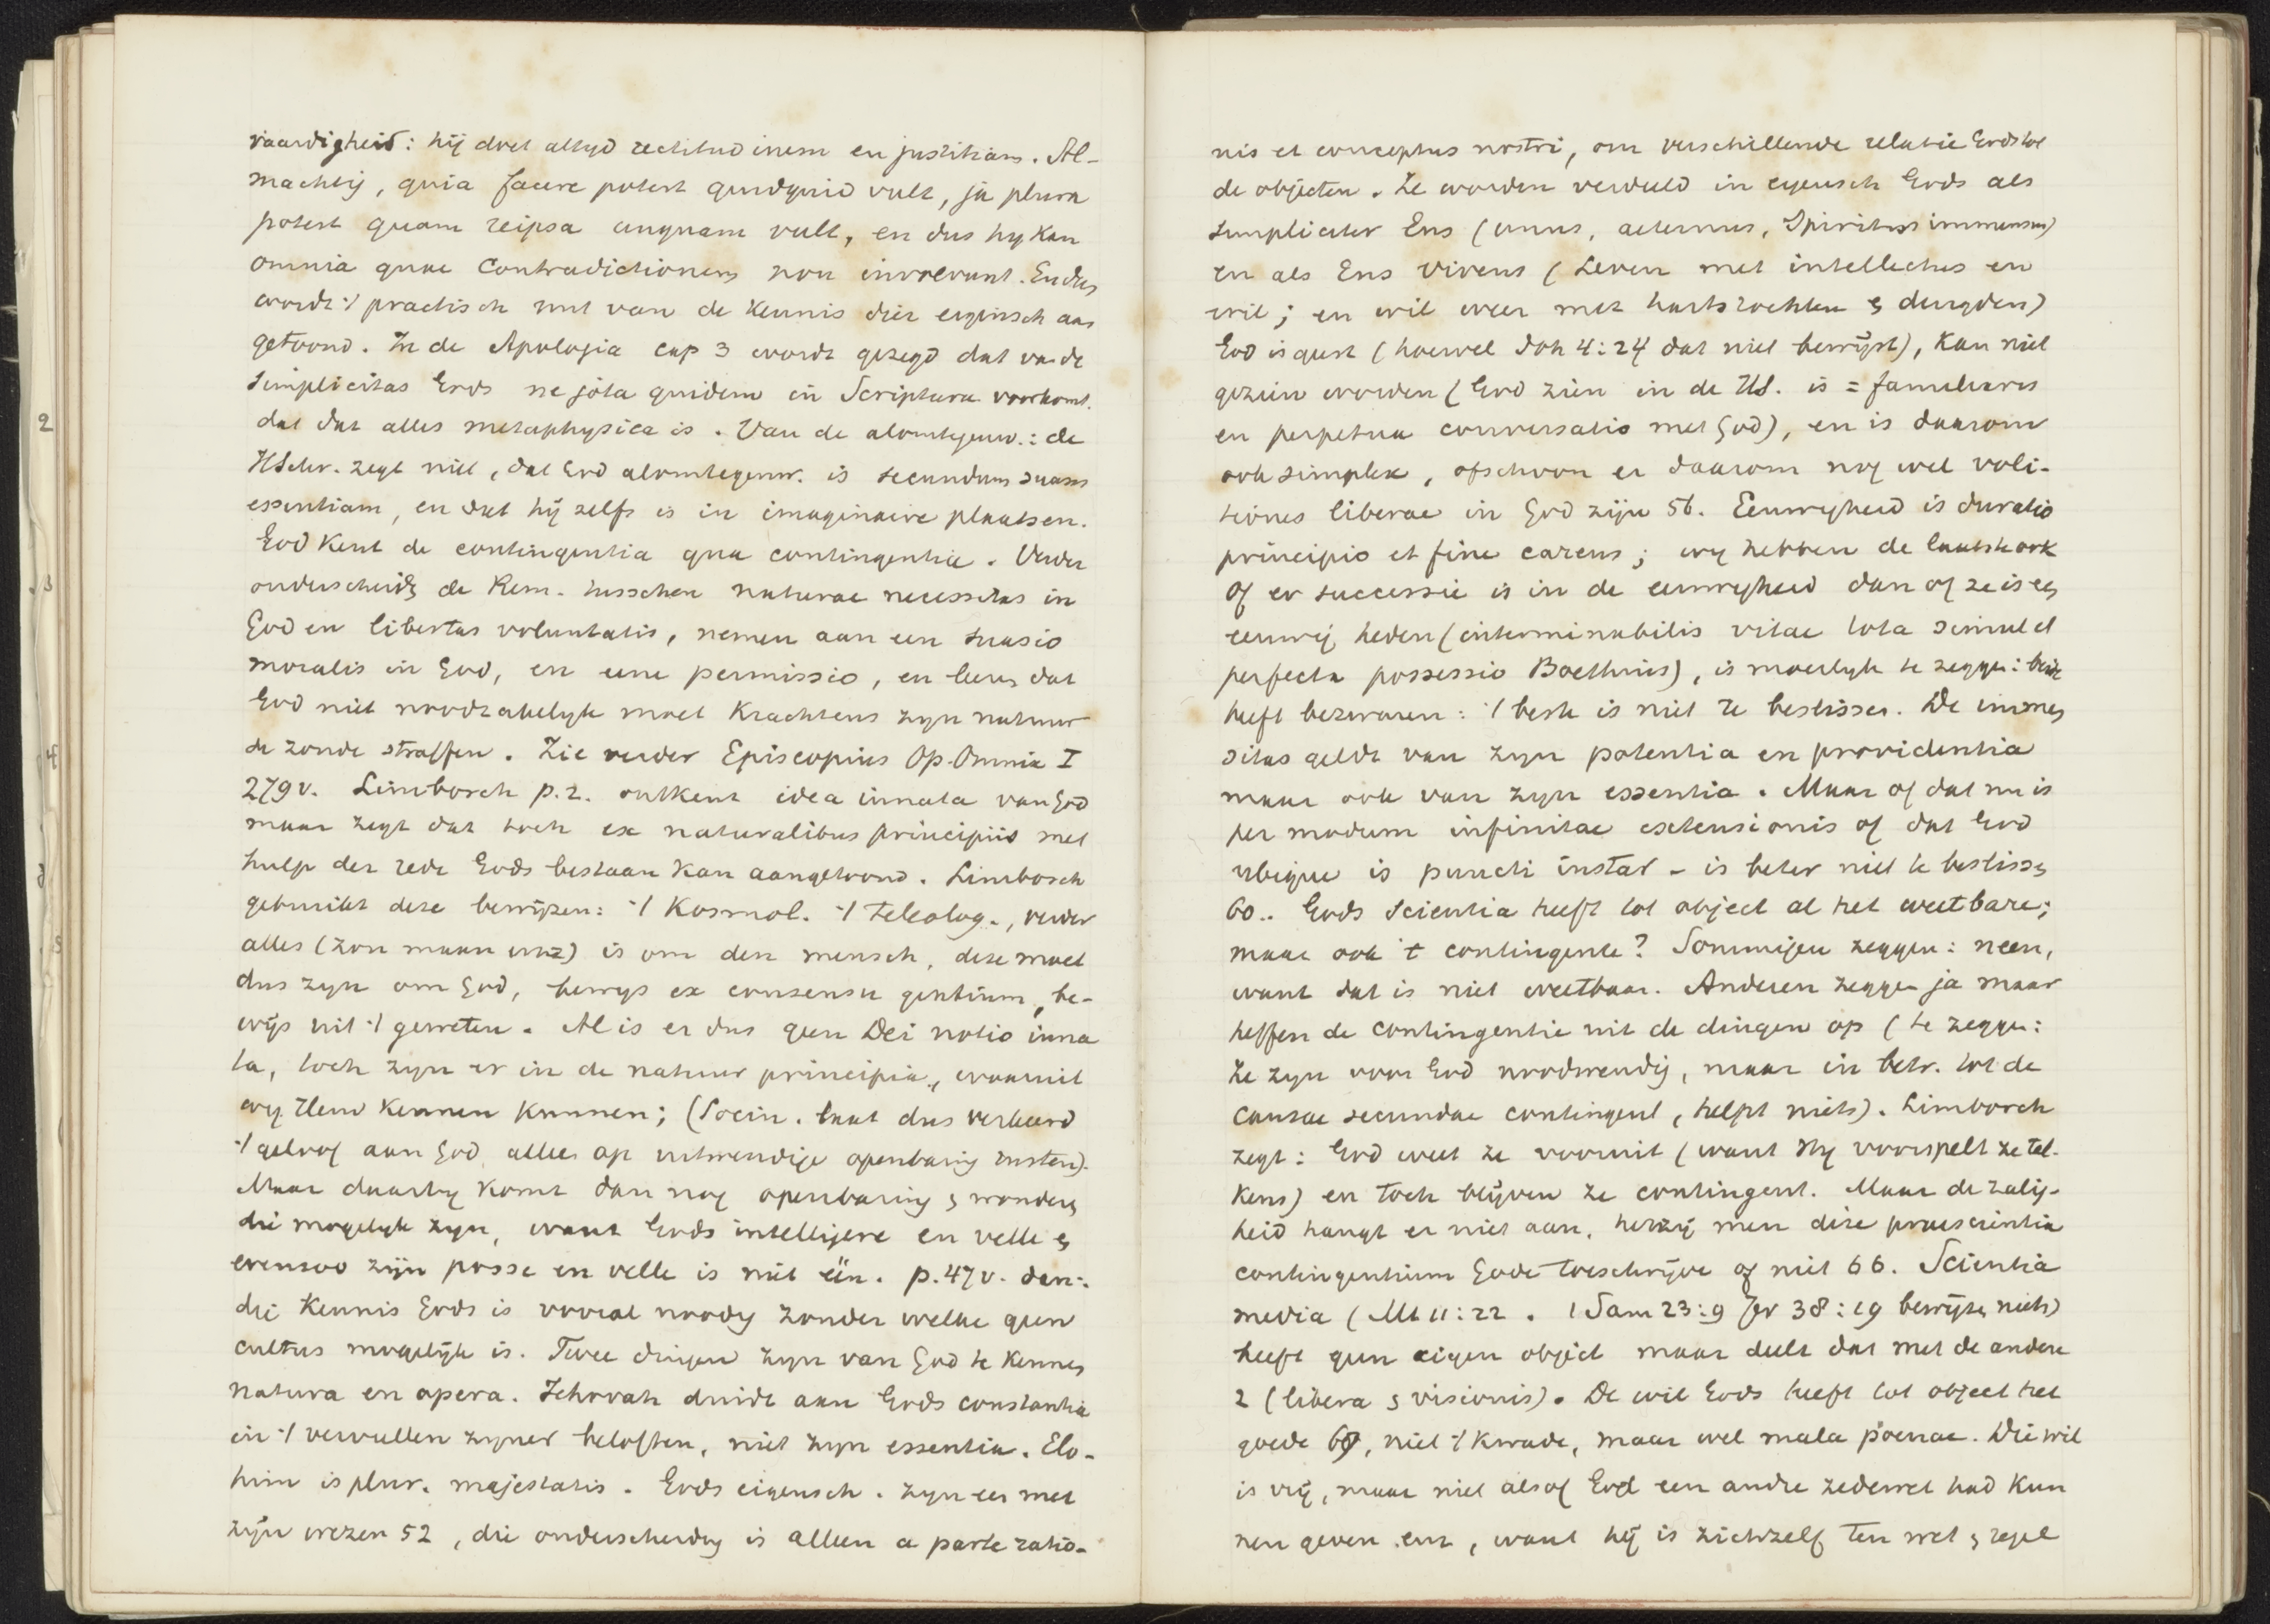 vaardigheid: hij doet altyd rectitudinem en justitiam. Al-
machtig, quia facere potest quidquid vult, ja plura
potest quam reipsa unquam vult, en dus hy kan
omnia quae contradictionem non involvunt. En dus
wordt 't practisch nut van de kennis dier eigensch aan
getoond. In de Apologia cap 3 wordt gezegd dat van de
simplicitas Gods ne jota quidem in Scriptura voorkomt.
dat dat alles metaphysica is. Van de alomtegenw.: de
HSchr. zegt niet, dat God alomtegenw. is secundum suam
essentiam, en dat hij zelfs is in imaginaire plaatsen.
God kent de contingentia qua contingentia. Verder
onderscheidn de Rem. tusschen naturae necessitas in
God en libertas voluntatis, nemen aan een suasio
moralis in God, en eene permissio, en leeren dat
God niet noodzakelyk moet krachtens zyn natuur
de zonde straffen. Zie verder Episcopius Op. Omnia I
279v. Limborch p. 2. ontkent idea innata van God
maar zegt dat toch ex naturalibus principiis met
hulp der rede Gods bestaan kan aangetoond. Limborch
gebruikt deze bewijzen: 't Kosmol. 't teleolog., verder
alles (zon maan enz) is om den mensch, deze moet
dus zyn om God, bewys ex consensu gentium, be-
wijs uit 't geweten. Al is er dus geen Dei notio inna
ta, toch zyn er in de natuur principia, waaruit
wy Hem kennen kunnen; (Socin. laat dus verkeerd
't geloof aan God alleen op uitwendige openbaring rusten).
Maar daarby komt dan nog openbaring & wonderen
die mogelyk zyn, want Gods intelligere en velle en
evenzoo zijn posse en velle is niet één. p. 47v. den:
die kennis Gods is vooral noodig zonder welke geen
cultus mogelijk is. Twee dingen zyn van God te kennen
natura en opera. Jehovah duidt aan Gods constantia
in 't vervullen zyner beloften, niet zyn essentia. Elo-
him is plur. majestatis. Gods eigensch. zyn een met
zijn wezen 52, die onderscheiding is alleen a parte ratio-
nis et conceptus nostri, om verschillende relatie Gods tot
de objecten. Ze worden verdeeld in eigensch Gods als
simpliciter Ens (unus, aeternus, Spiritus immensus)
en als Ens vivens (Leven met intellectus en
wil; en wil weer met hartstochten & deugden)
God is geest (hoewel Joh 4:24 dat niet bewijst), kan niet
gezien worden (God zien in de HS. is = familiaris
en perpetua conversatio met God), en is daarom
ook simplex, ofschoon er daarom nog wel voli-
tiones liberae in God zijn 56. Eeuwigheid is duratio
principio et fine carens; wy hebben de laatste ook
Of er successie is in de eeuwigheid dan of ze is een
eeuwig heden (interminabilis vitae tota simul et
perfecta possessio Boethius), is moeilyk te zeggen: beide
heeft bezwaren: 't beste is niet te beslissen. De immen
sitas geldt van zyn potentia en providentia
maar ook van zyn essentia. Maar of dat nu is
per modum infinitae extensionis of dat God
ubique is puncti instar - is beter niet te beslissen
60.. Gods scientia heeft tot object al het weetbare;
maar ook 't contingente? Sommigen zeggen: neen,
want dat is niet weetbaar. Anderen zeggen ja maar
heffen de contingentie uit de dingen op (te zeggen:
ze zyn voor God noodwendig, maar in betr. tot de
causae secundae contingent, helpt niets). Limborch
zegt: God weet ze vooruit (want Hy voorspelt ze tel-
kens) en toch blijven ze contingent. Maar de zalig-
heid hangt er niet aan, hetzij men deze praescientia
contingentium Gode toeschrijve of niet 66. Scientia
media (Mt 11:22. 1 Sam 23:9 Jer 38:19 bewijzen niets)
heeft geen eigen object maar deelt dat met de andere
2 (libera & visionis). De wil Gods heeft tot object het
goede 69, niet 't kwade, maar wel mala poenae. Die wil
is vrij, maar niet alsof God een andre zedewet had kun
nen geven enz, want hij is zichzelf ten wet & regel